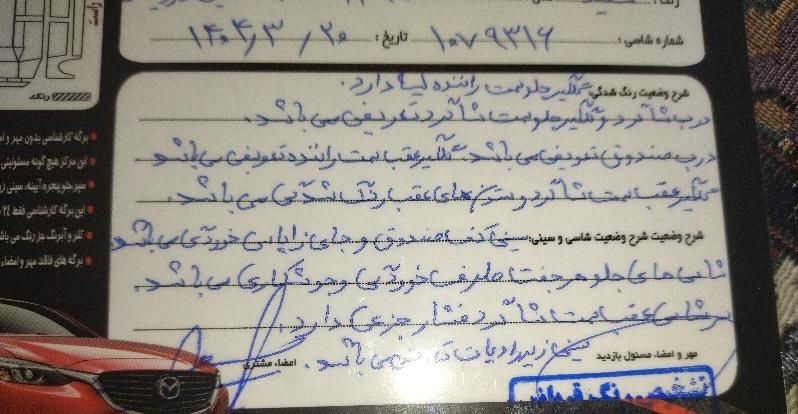 راست
رنگ
شماره شاسی: ۱۰۷۹۳۱۶ تاریخ: ۱۴۰۴/۳/۲۰
شرح وضعیت رنگ شدگی: گلگیر جلو سمت راننده لیسه دارد.
درب شاگرد و گلگیر جلو سمت شاگرد تعویض می باشد.
درب صندوق تعویض می باشد. گلگیر عقب سمت راننده تعویض می باشد
گلگیر عقب سمت شاگرد و ستون های عقب رنگ شدگی می باشد.
شرح وضعیت شرح وضعیت شاسی و سینی: سینی کف صندوق و جای زاپاس خوردگی می باشد
شاسی های جلو هر جفت طرف خوردگی و جوشکاری می باشد.
سرشاسی عقب سمت شاگرد فشار جزیی دارد.
سینی زیر رادیات تعویض می باشد.
مهر و امضاء مسئول بازدید
امضاء مشتری
تشخیص رنگ
برگه کارشناسی بدون مهر و امضاء
این مرکز هیچ گونه مسئولیتی
سپر جلو پنجره، آیینه، سینی
این برگه کارشناسی فقط ۲۴
کلر و آبرنگ جز رنگ می باشد
برگه های فاقد مهر و امضاء